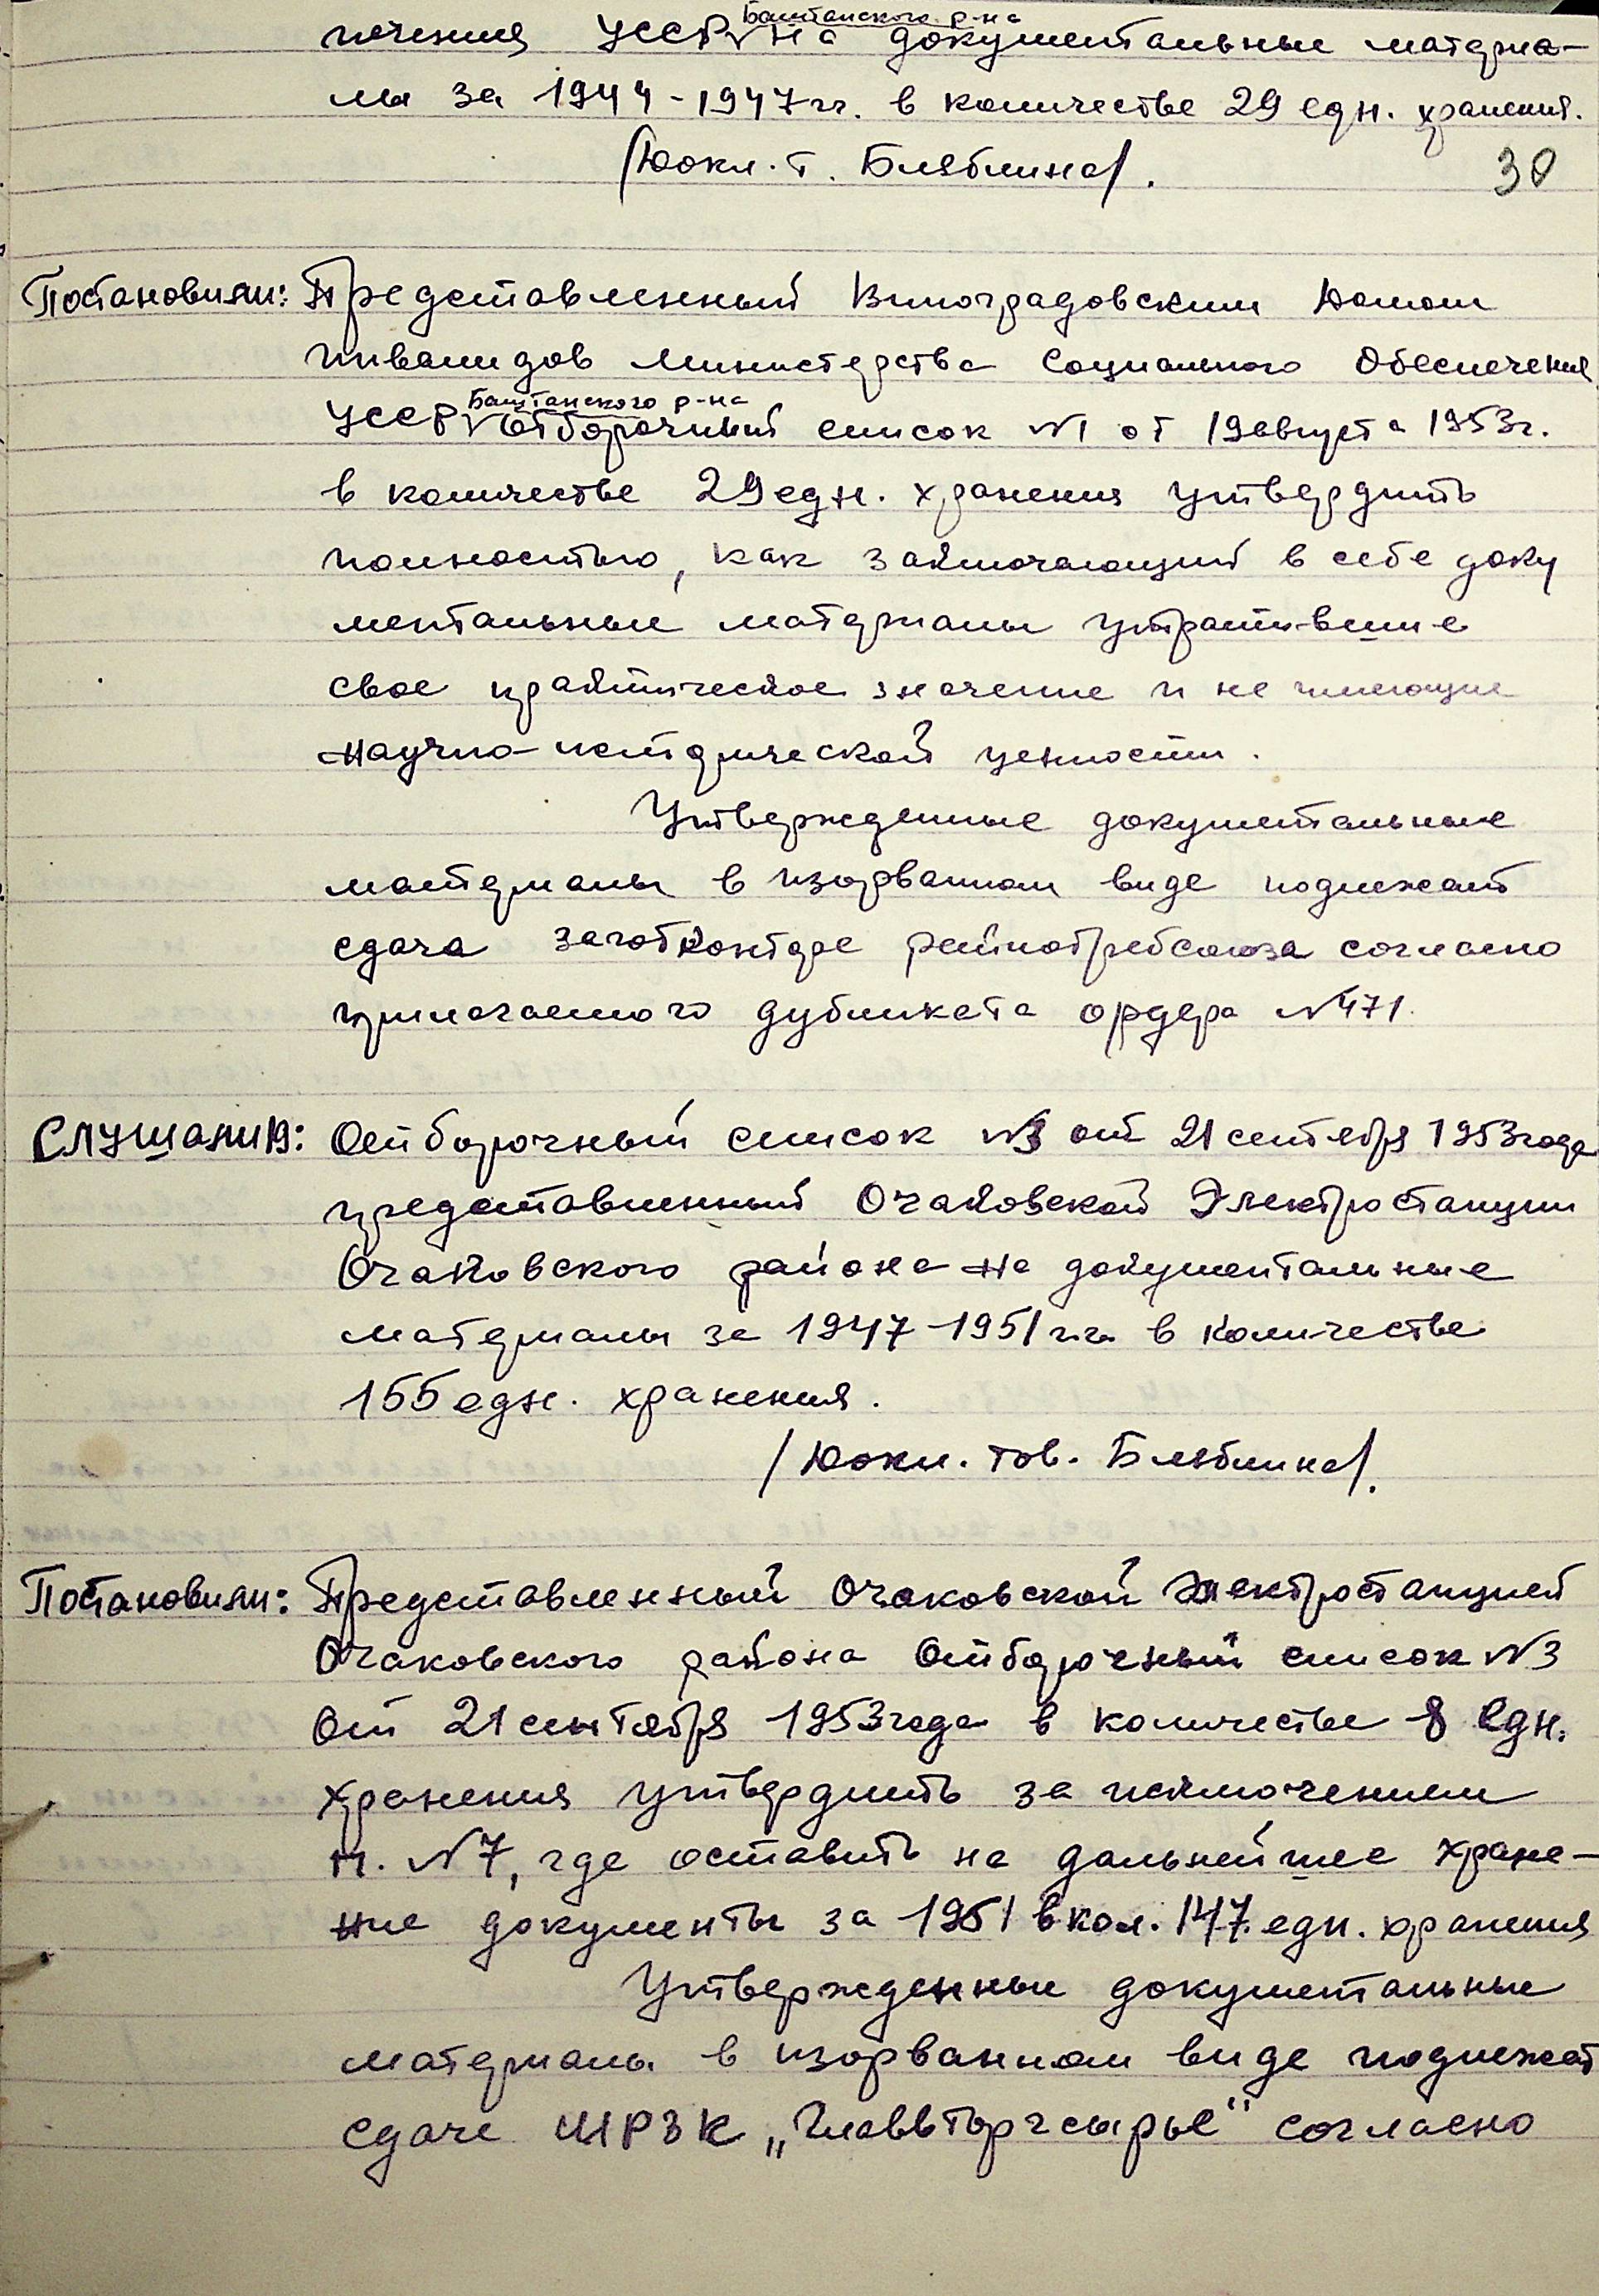 Баштанского р-на
печения УССР на документальные материа-
лы за 1944-1947 гг. в количестве 29 едн. хранения.
/Докл. т. Бляблина/.
30
Постановили: Представленный Виноградовским Домом
инвалидов Министерства Социального Обеспечения
Баштанского р-на
УССР отборочный список №1 от 19 августа 1953г.
в количестве 29 едн. хранения утвердить
полностью, как заключающий в себе доку
ментальные материалы утратившие
свое практическое значение и не имеющие
научно-исторической ценности.
Утвержденные документальные
материалы в изорванном виде подлежат
сдача заготконторе райпотребсоюза согласно
прилагаемого дубликата ордера №471.
Слушали: Отборочный список №3 от 21 сентября 1953 года
представленный Очаковской Электростанции
Очаковского района на документальные
материалы за 1947-1951 г.г. в количестве
155 едн. хранения.
/Докл. тов. Бляблина/.
Постановили: Представленный Очаковской Электростанцией
Очаковского района Отборочный список №3
от 21 сентября 1953 года в количестве 8 едн.
хранения утвердить за исключением
п. №7, где оставить на дальнейшее хране-
ние документы за 1951 в кол. 147 едн. хранения
Утвержденные документальные
материалы в изорванном виде подлежат
сдаче ШРЗК „Главвторчсырье" согласно